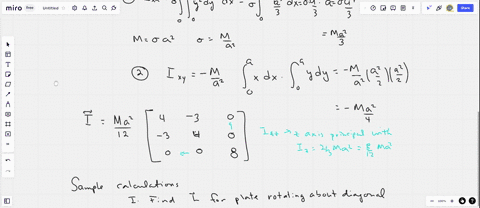 miro Untitled Share
M = σa² σ = M/a² = Ma²/3
② I_xy = -M/a² ∫₀ᵃ x dx · ∫₀ᵃ y dy = -M/a² (a²/2)(a²/2)
= -Ma²/4
Ĩ = Ma²/12 [ 4 -3 0
-3 4 0
0 0 8 ]
z axis principal with
I_z = 2/3 Ma² = 8/12 Ma²
Sample calculations
1. Find L for plate rotating about diagonal